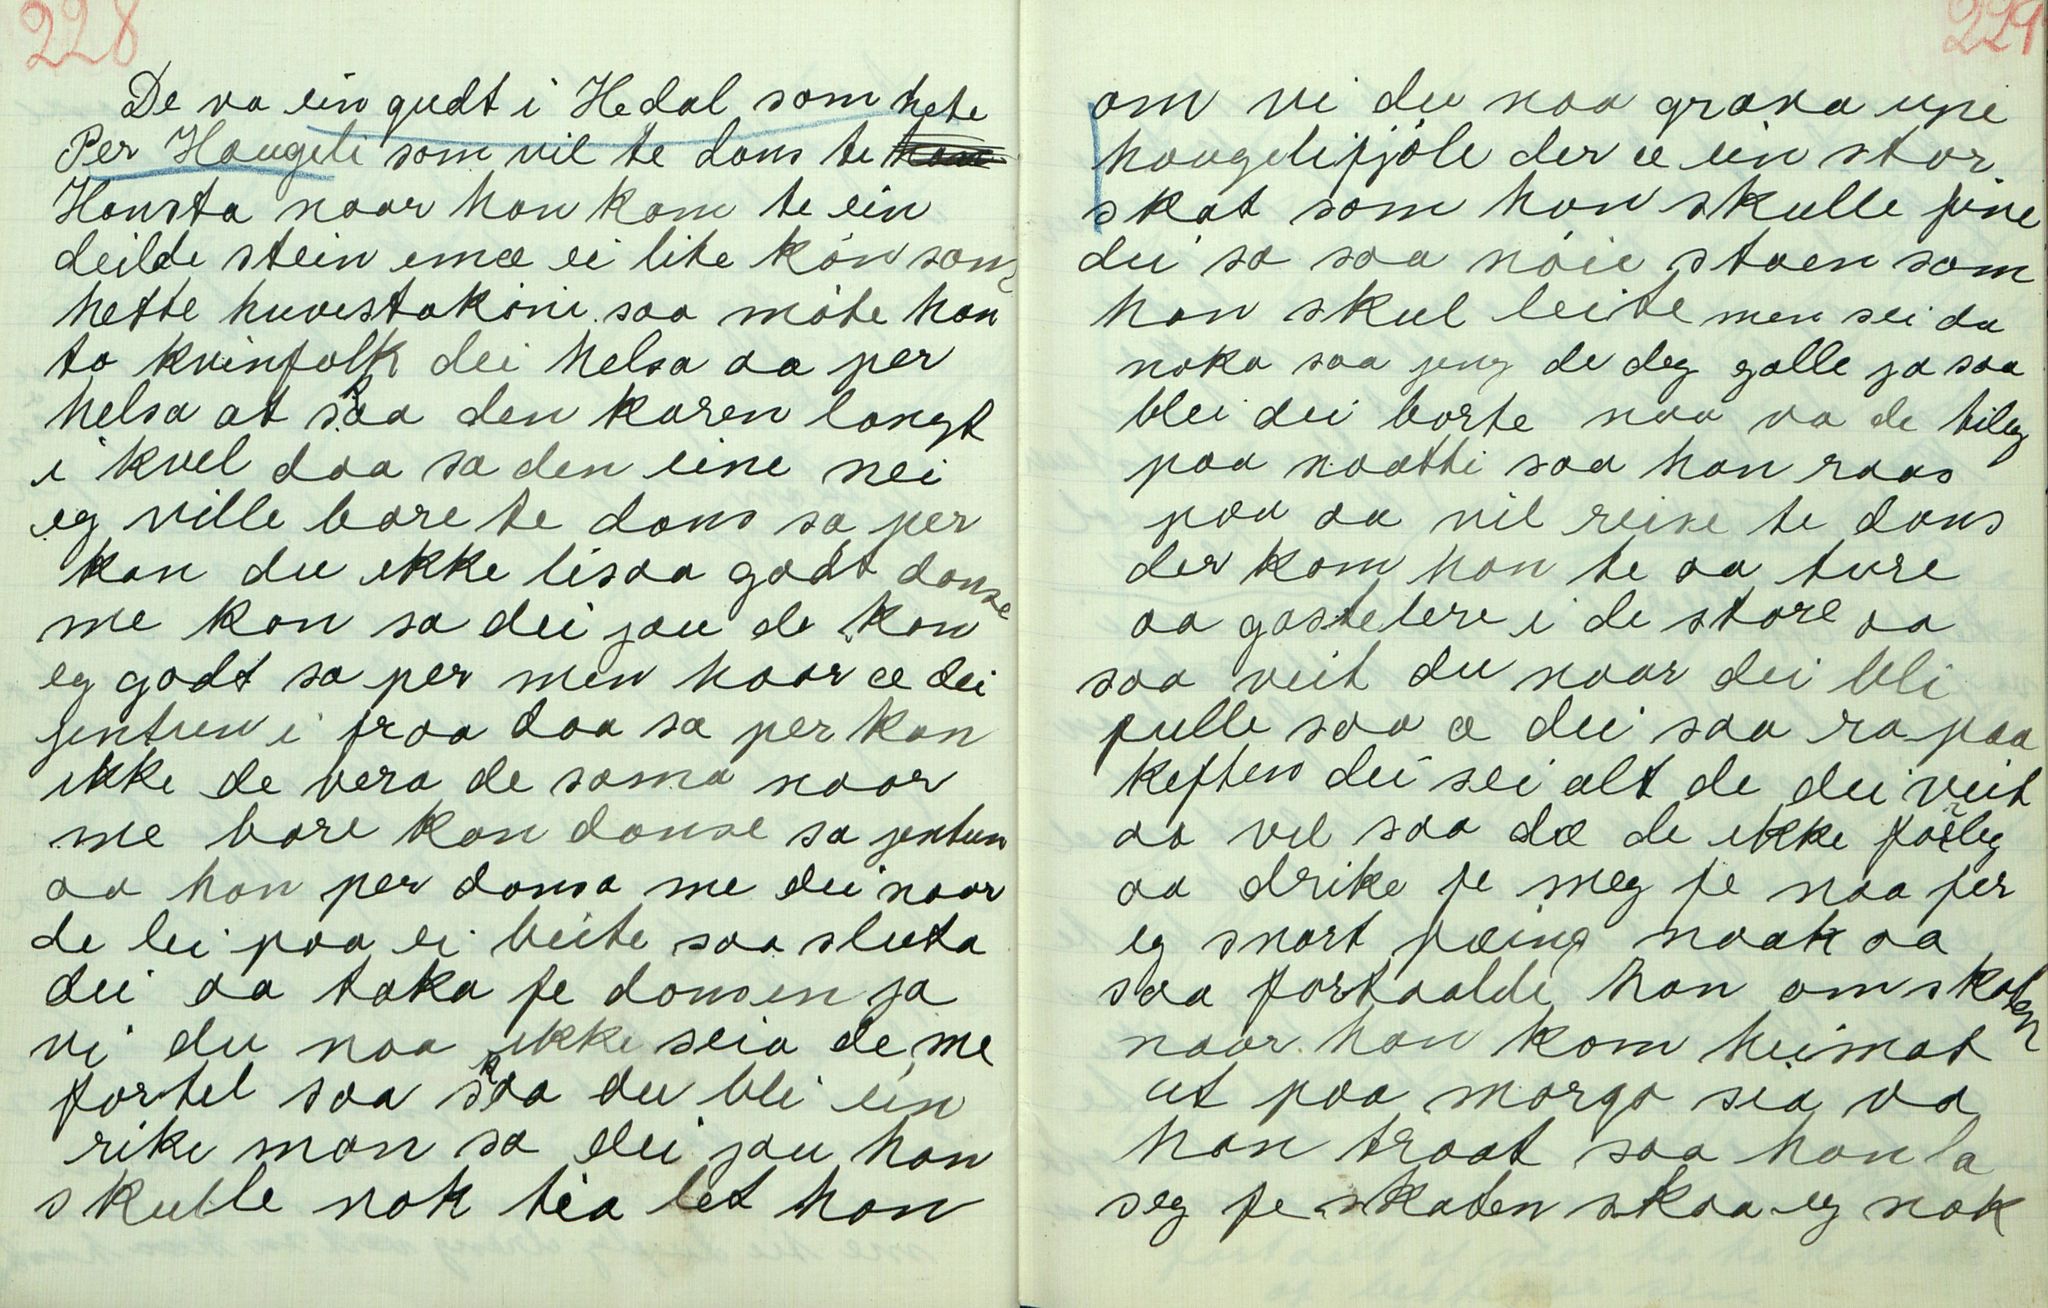 228
De va ein gudt i Hedal som hete
Per Haugeli som vil te dans te
Hansta naar han kom te ein
deilde stein emæ ei lite kôn som
hette huvestakôni saa môte han
to kvinfolk dei helsa aa per
helsa at skaa den karen langt
i kvel daa sa den eine nei
eg ville bare te dans sa per
kan du ikke lisaa godt danse
me kon sa dei jau de kan
eg godt sa per men haar æ dei
jentun i fraa daa sa per kan
ikke de vera de sama naar
me bare kan danse sa jentun
aa han per dansa me dei naar
de lei paa ei beite saa sluta
dei aa taka fe dansen ja
vi du naa ikke seia de me
fortel saa skaa du bli ein
rike man sa dei jau han
skulle nok teia let han
229
om vi du naa grava upi
haugelifjôle der æ ein stor
skat som han skulle fine
dei sa saa nôie staen som
han skul leite men sei du
noka saa jeng de deg galle ja saa
blei dei borte naa va de tileg
paa naatti saa han raas
paa aa vil reise te dans
der kom han te aa ture
aa gastebere i de store aa
saa veit du naar dei bli
fulle saa æ dei saa ra paa
keften dei sei alt de dei veit
aa vel saa dæ de ikke farleg
aa drike fe meg fe naa fer
eg snart pæing naak aa
saa fortaalde han om skaten
naar han kom heimat
ut paa morgo sia va
han traat saa han la
seg fe skaten skaa eg nok